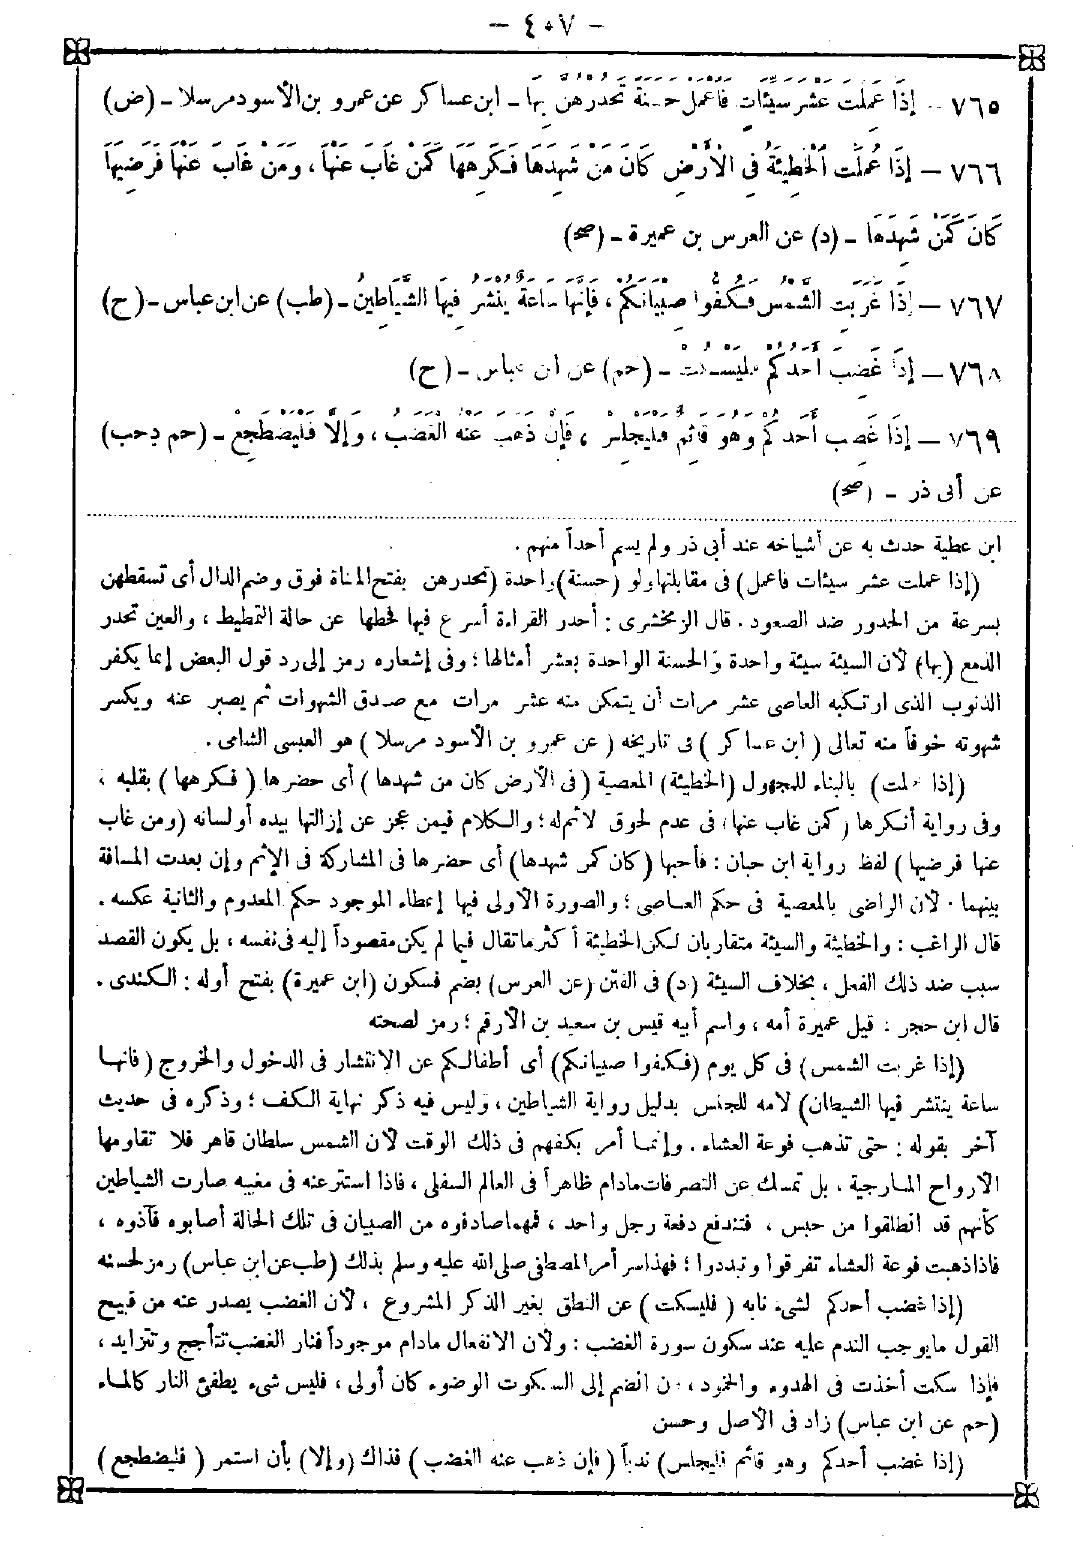 - ٤٠٧ -
٧٦٥ - إِذَا عَمِلْتَ عَشْرَ سَيِّئَاتٍ فَاعْمَلْ حَسَنَةً تَحْدُرُهُنَّ بِهَا - ابن عساكر عن عمرو بن الأسود مرسلا - (ض)
٧٦٦ - إِذَا عُمِلَتِ الْخَطِيئَةُ فِي الْأَرْضِ كَانَ مَنْ شَهِدَهَا فَكَرِهَهَا كَمَنْ غَابَ عَنْهَا ، وَمَنْ غَابَ عَنْهَا فَرَضِيَهَا
كَانَ كَمَنْ شَهِدَهَا - (د) عن العرس بن عميرة - (صح)
٧٦٧ - إِذَا غَرَبَتِ الشَّمْسُ فَكُفُّوا صِبْيَانَكُمْ ، فَإِنَّهَا سَاعَةٌ يَنْتَشِرُ فِيهَا الشَّيَاطِينُ - (طب) عن ابن عباس - (ح)
٧٦٨ - إِذَا غَضِبَ أَحَدُكُمْ فَلْيَسْكُتْ - (حم) عن ابن عباس - (ح)
٧٦٩ - إِذَا غَضِبَ أَحَدُكُمْ وَهُوَ قَائِمٌ فَلْيَجْلِسْ ، فَإِنْ ذَهَبَ عَنْهُ الْغَضَبُ ، وَإِلَّا فَلْيَضْطَجِعْ - (حم د حب)
عن أبى ذر - (صح)
ابن عطية حدث به عن أشياخه عند أبى ذر ولم يسم أحداً منهم .
(إذا عملت عشر سيئات فاعمل) فى مقابلتها ولو (حسنة) واحدة (تحدرهن بفتح المثناة فوق وضم الدال أى تسقطهن
بسرعة من الحدور ضد الصعود . قال الزمخشرى : أحدر القراءة أسرع فيها فحطها عن حالة التمطيط ، والعين تحدر
الدمع (بها) لأن السيئة سيئة واحدة والحسنة الواحدة بعشر أمثالها ؛ وفى إشعاره رمز إلى رد قول البعض إنما يكفر
الذنوب الذى ارتكبه العاصى عشر مرات أن يتمكن منه عشر مرات مع صدق الشهوات ثم يصبر عنه ويكسر
شهوته خوفاً منه تعالى ( ابن عساكر ) فى تاريخه ( عن عمرو بن الأسود مرسلا ) هو العبسى الشامى .
(إذا عملت) بالبناء للمجهول (الخطيئة) المعصية (فى الأرض كان من شهدها ) أى حضرها ( فكرهها ) بقلبه ،
وفى رواية أنكرها (كمن غاب عنها) فى عدم لحوق الاثم له ؛ والكلام فيمن عجز عن إزالتها بيده أو لسانه (ومن غاب
عنها فرضيها ) لفظ رواية ابن حبان : فأحبها (كان كمن شهدها) أى حضرها فى المشاركة فى الإثم وإن بعدت المسافة
بينهما . لأن الراضى بالمعصية فى حكم العاصى ؛ والصورة الأولى فيها إعطاء الموجود حكم المعدوم والثانية عكسه .
قال الراغب : والخطيئة والسيئة متقاربان لكن الخطيئة أكثر ما تقال فيما لم يكن مقصوداً إليه فى نفسه ، بل يكون القصد
سبب ضد ذلك الفعل ، بخلاف السيئة (د) فى الفتن (عن العرس) بضم فسكون (ابن عميرة) بفتح أوله : الكندى .
قال ابن حجر : قيل عميرة أمه ، واسم أبيه قيس بن سعيد بن الأرقم ؛ رمز لصحته
(إذا غربت الشمس) فى كل يوم (فكفوا صبيانكم) أى أطفالكم عن الانتشار فى الدخول والخروج ( فانها
ساعة ينتشر فيها الشيطان) لامه للجنس بدليل رواية الشياطين ، وليس فيه ذكر نهاية الكف ؛ وذكره فى حديث
آخر بقوله : حتى تذهب فوعة العشاء . وإنما أمر بكفهم فى ذلك الوقت لأن الشمس سلطان قاهر فلا تقاومها
الأرواح المارجية . بل تمسك عن التصرفات مادام ظاهراً فى العالم السفلى ، فاذا استتر عنه فى مغيبه صارت الشياطين
كأنهم قد انطلقوا من حبس ، فتندفع دفعة رجل واحد ، فمهما صادفوه من الصبيان فى تلك الحالة أصابوه فآذوه ،
فاذا ذهبت فوعة العشاء تفرقوا وتبددوا ؛ فهذا سر أمر المصطفى صلى الله عليه وسلم بذلك (طب عن ابن عباس) رمز لحسنه
(إذا غضب أحدكم لشىء نابه ( فليسكت ) عن النطق بغير الذكر المشروع ، لأن الغضب يصدر عنه من قبيح
القول ما يوجب الندم عليه عند سكون سورة الغضب : ولأن الانفعال مادام موجوداً فنار الغضب تتأجج وتتزايد ،
فإذا سكت أخذت فى الهدوء والخمود ، فإن انضم إلى السكوت الوضوء كان أولى ، فليس شىء يطفئ النار كالماء
(حم عن ابن عباس) زاد فى الأصل وحسن
(إذا غضب أحدكم وهو قائم فليجلس) ندباً ( فإن ذهب عنه الغضب ) فذاك (وإلا) بأن استمر ( فليضطجع )